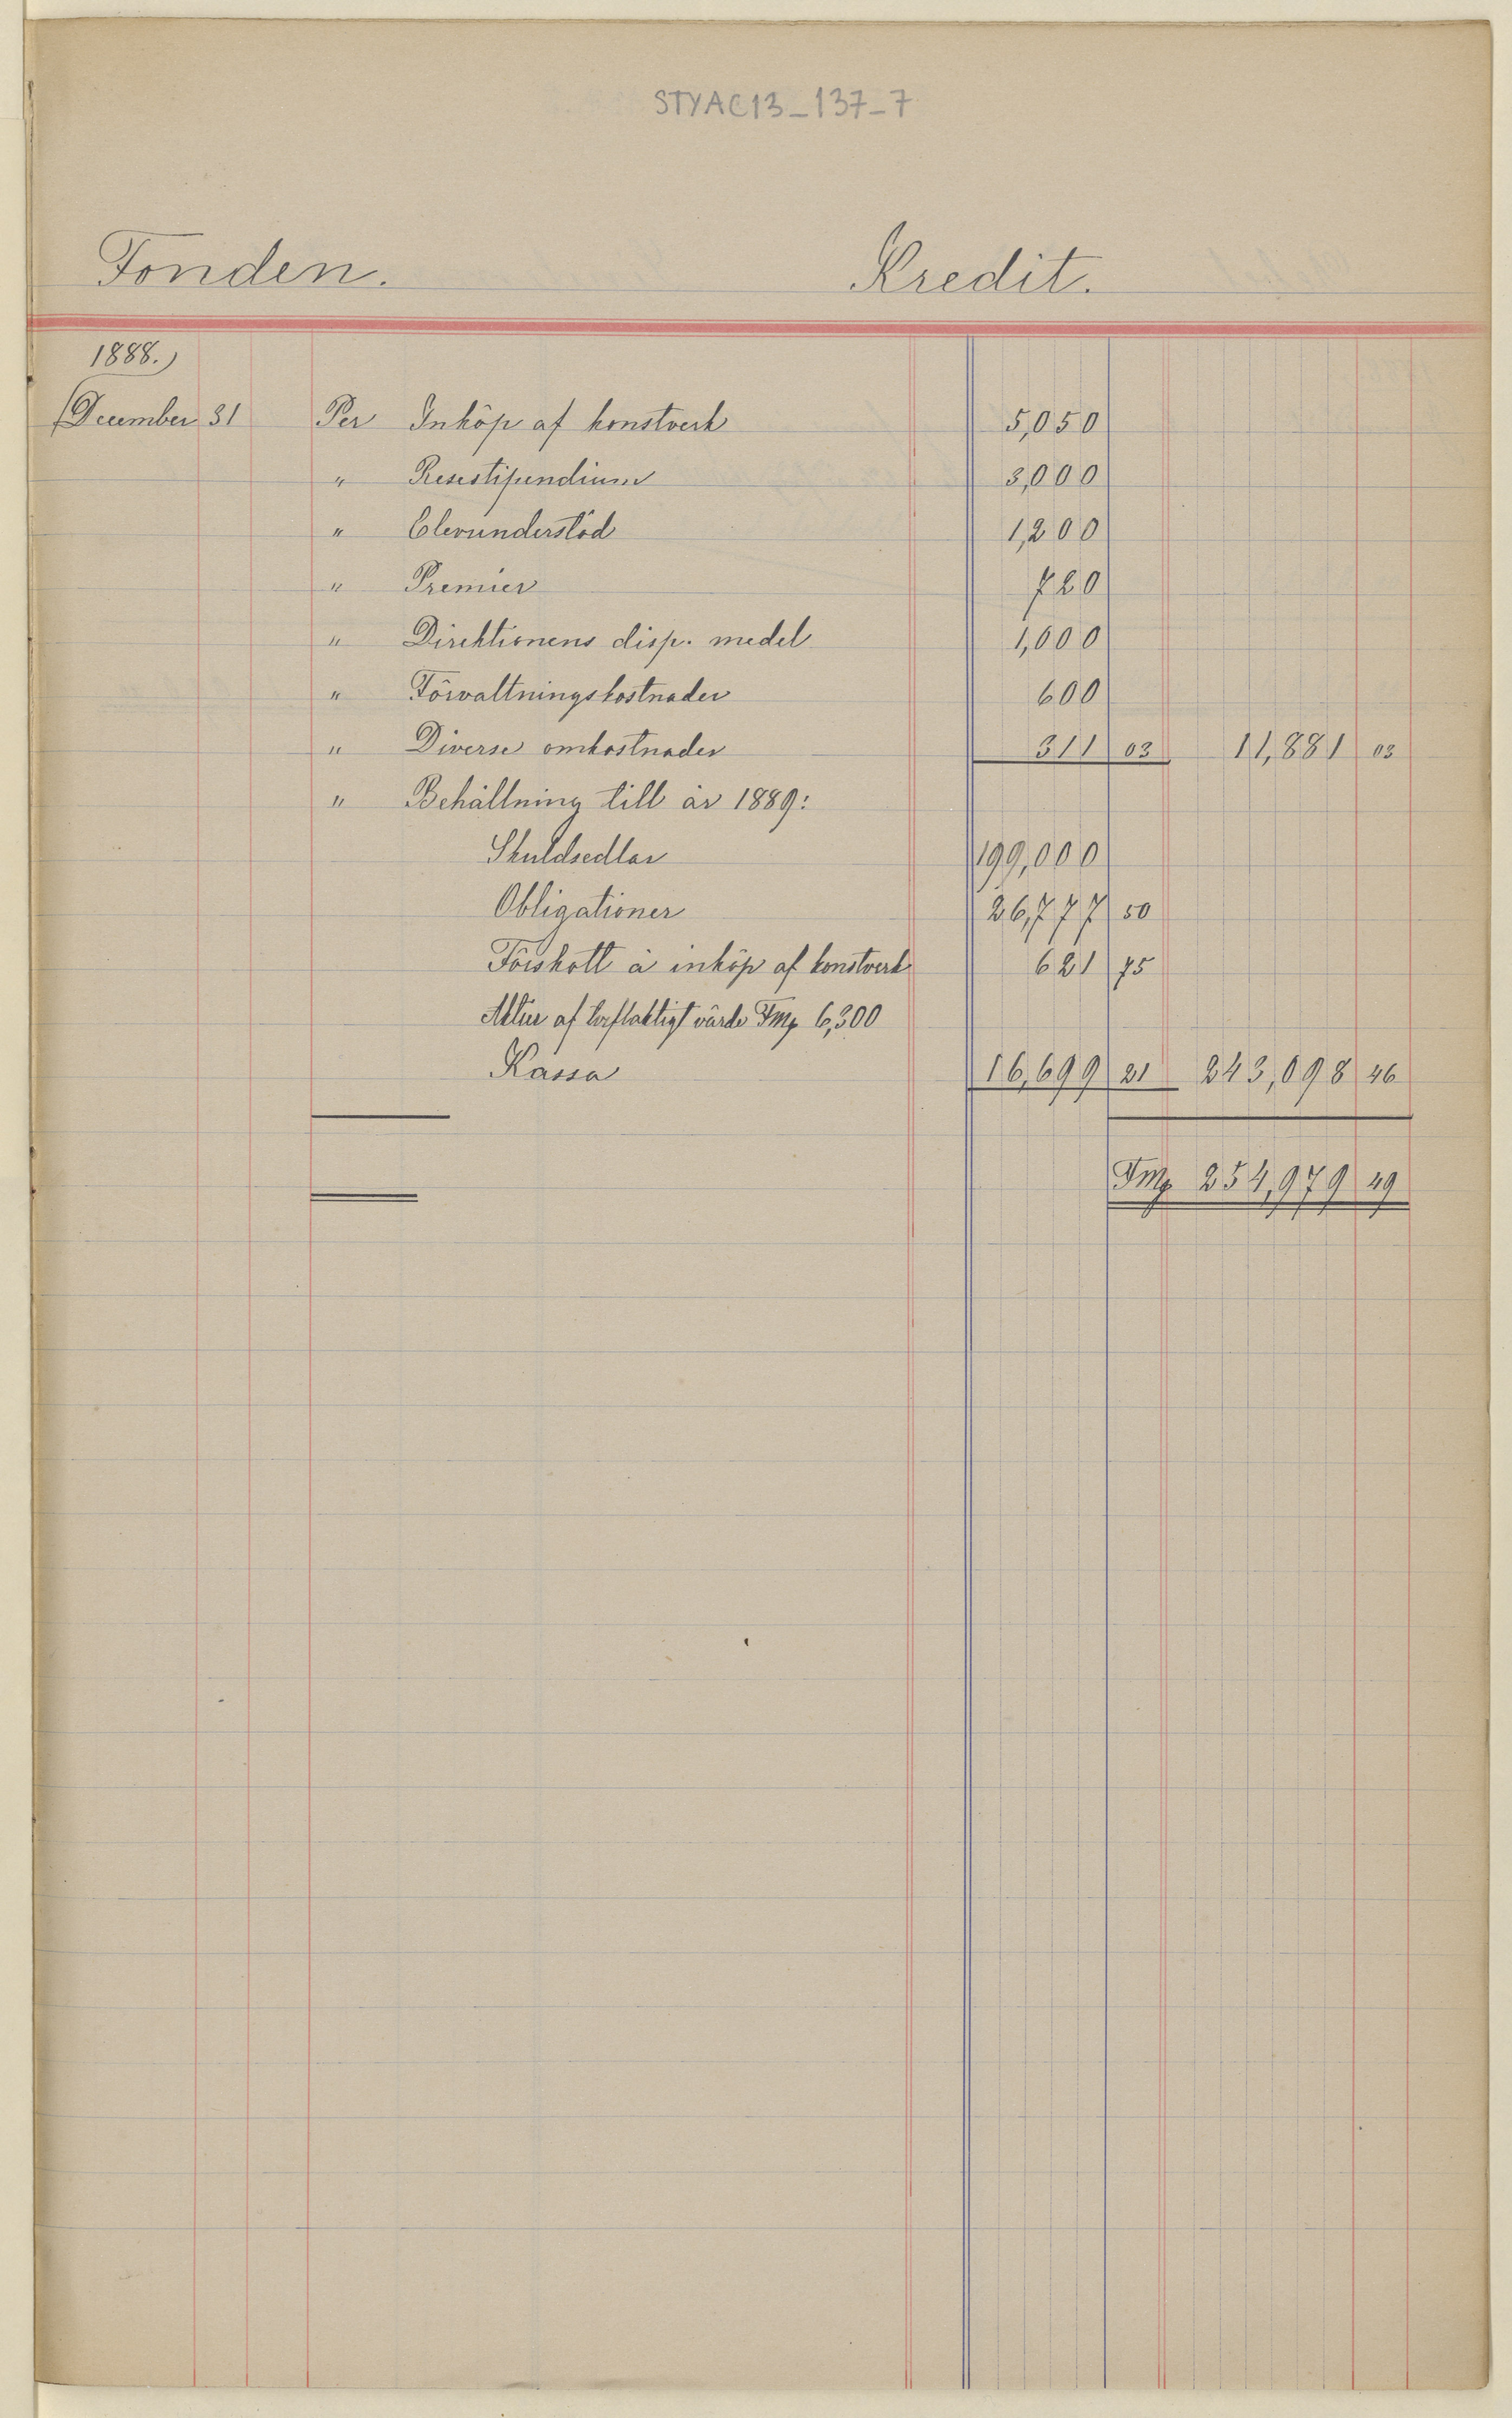 STYAC13_137_7
Fonden. Kredit.
1888.
December 31 Per Inköp af konstverk 5,050
" Resestipendium 3,000
" Elevunderstöd 1,200
" Premier 720
" Direktionens disp. medel 1,000
" Förvaltningskostnader 600
" Diverse omkostnader 311 03 11,881 03
" Behållning till år 1889:
Skuldsedlar 199,000
Obligationer 26,777 50
Förskott å inköp af konstverk 621 75
Aktier af värde Fmk 6,300
Kassa 16,699 21 243,098 46
Fmk 254,979 49